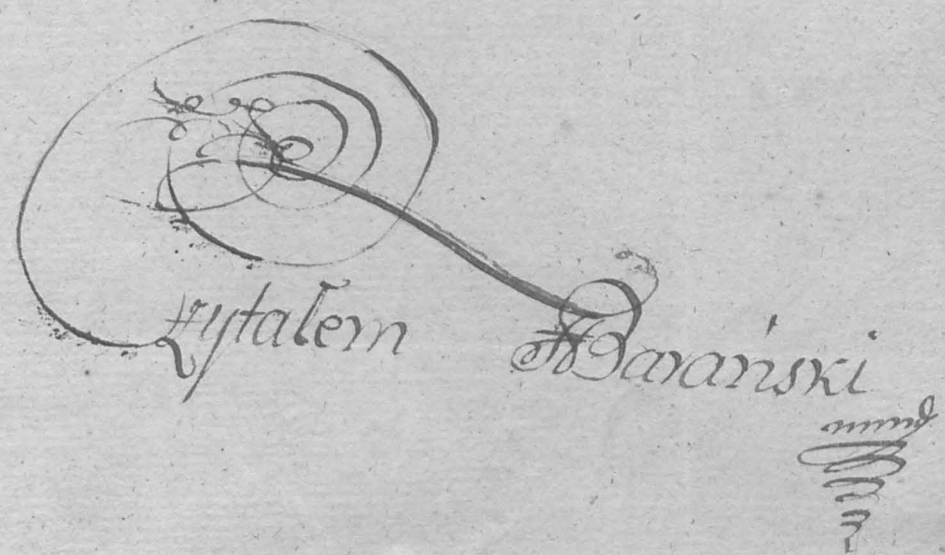 Czytałem Barański